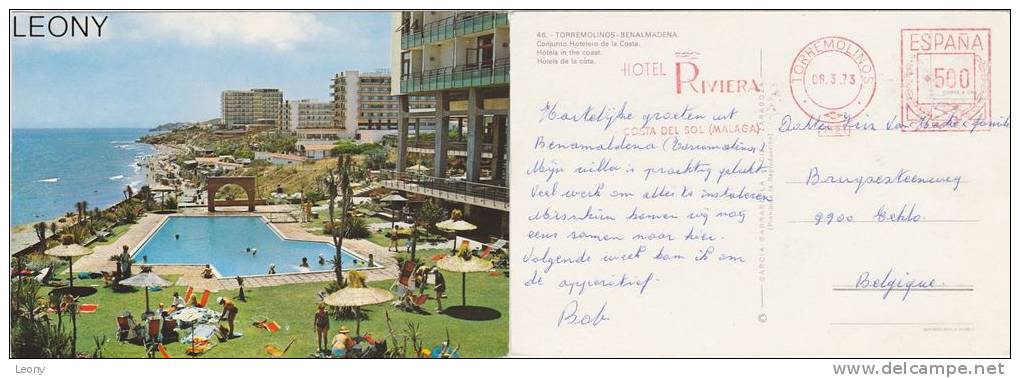 LEONY
46. - TORREMOLINOS-BENALMADENA.
Conjunto Hotelero de la Costa.
Hotels in the coast.
Hotels de la côte.
HOTEL RIVIERA
COSTA DEL SOL (MALAGA)
TORREMOLINOS
06.3.73
ESPAÑA
500
Hartelijke groeten uit
Benamaldena (Torremolinos)
Mijn villa is prachtig gelukt
Veel werk om alles te installeren
Misschien komen wij nog
eens samen naar hier.
Volgende week kom ik om
de apperitief.
Bob.
Dokter
familie
Brugsesteenweg
9900 Eeklo.
Belgique.
GARCIA GARRABELLA
©
Leony
delcampe.net